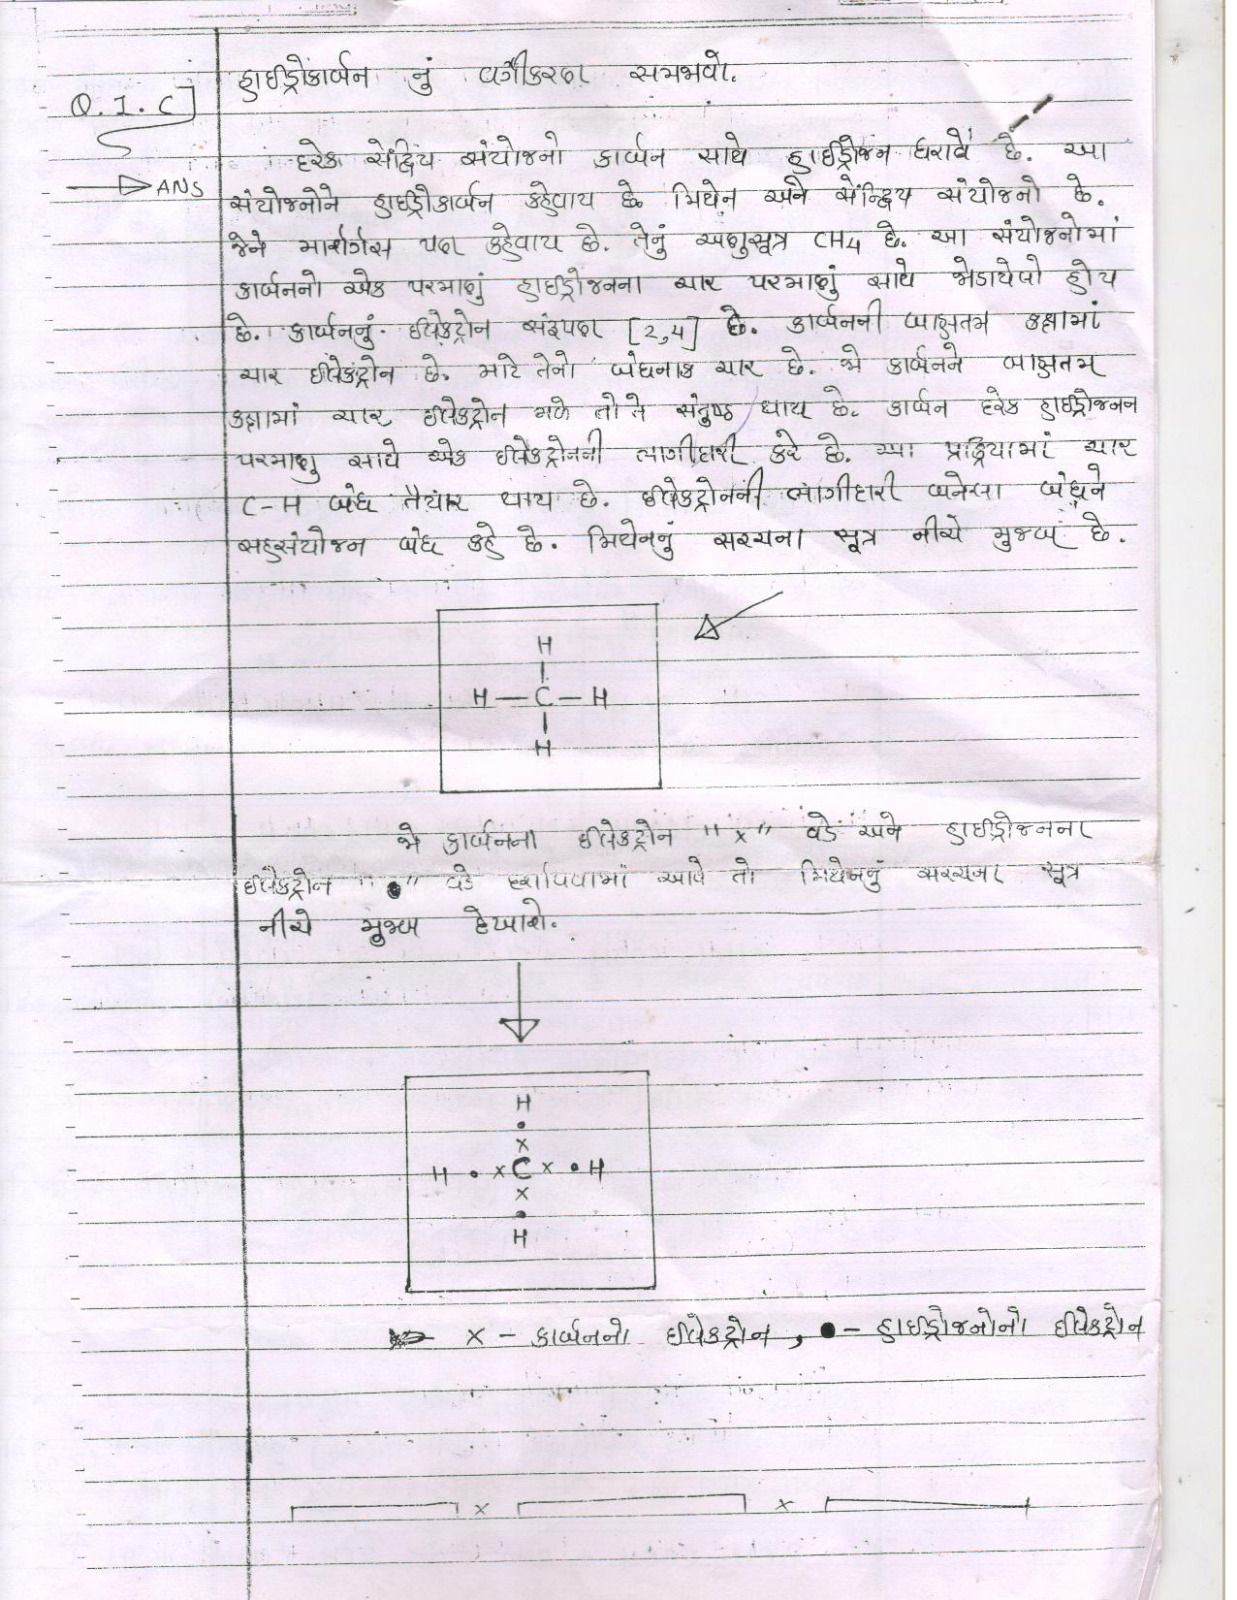 હાઈડ્રોકાર્બન નું વર્ગીકરણ સમજાવો.
Q. 1. C]
દરેક સેંદ્રિય સંયોજનો કાર્બન સાથે હાઈડ્રોજન ધરાવે છે. આ
→ ANS
સંયોજનોને હાઈડ્રોકાર્બન કહેવાય છે મિથેન અને સેન્દ્રિય સંયોજનો છે.
જેને માર્શગેસ પણ કહેવાય છે. તેનું અણુસૂત્ર CH4 છે. આ સંયોજનોમાં
કાર્બનનો એક પરમાણું હાઈડ્રોજનના ચાર પરમાણું સાથે જોડાયેલો હોય
છે. કાર્બનનું ઈલેક્ટ્રોન સંરૂપણ [2,4] છે. કાર્બનની બાહ્યતમ કક્ષામાં
ચાર ઈલેકટ્રોન છે. માટે તેનો બંધનાક ચાર છે. જો કાર્બનને બાહ્યતમ
કક્ષામાં ચાર ઈલેકટ્રોન મળે તો તે સંતુષ્ઠ થાય છે. કાર્બન દરેક હાઈડ્રોજનન
પરમાણુ સાથે એક ઈલેકટ્રોનની ભાગીદારી કરે છે. આ પ્રક્રિયામાં ચાર
C-H બંધ તૈયાર થાય છે. ઈલેકટ્રોનની ભાગીદારી બનેલા બંધને
સહસંયોજન બંધ કહે છે. મિથેનનું સરચના સૂત્ર નીચે મુજબ છે.
H
|
H — C — H
|
H
જો કાર્બનના ઈલેકટ્રોન "x" વડે અને હાઈડ્રોજનના
ઈલેકટ્રોન "•" વડે દર્શાવવામાં આવે તો મિથેનનું સરચના સૂત્ર
નીચે મુજબ દેખાશે.
H
•
x
H • x C x • H
x
•
H
x - કાર્બનનો ઈલેકટ્રોન, • - હાઈડ્રોજનોનો ઈલેકટ્રોન
x x